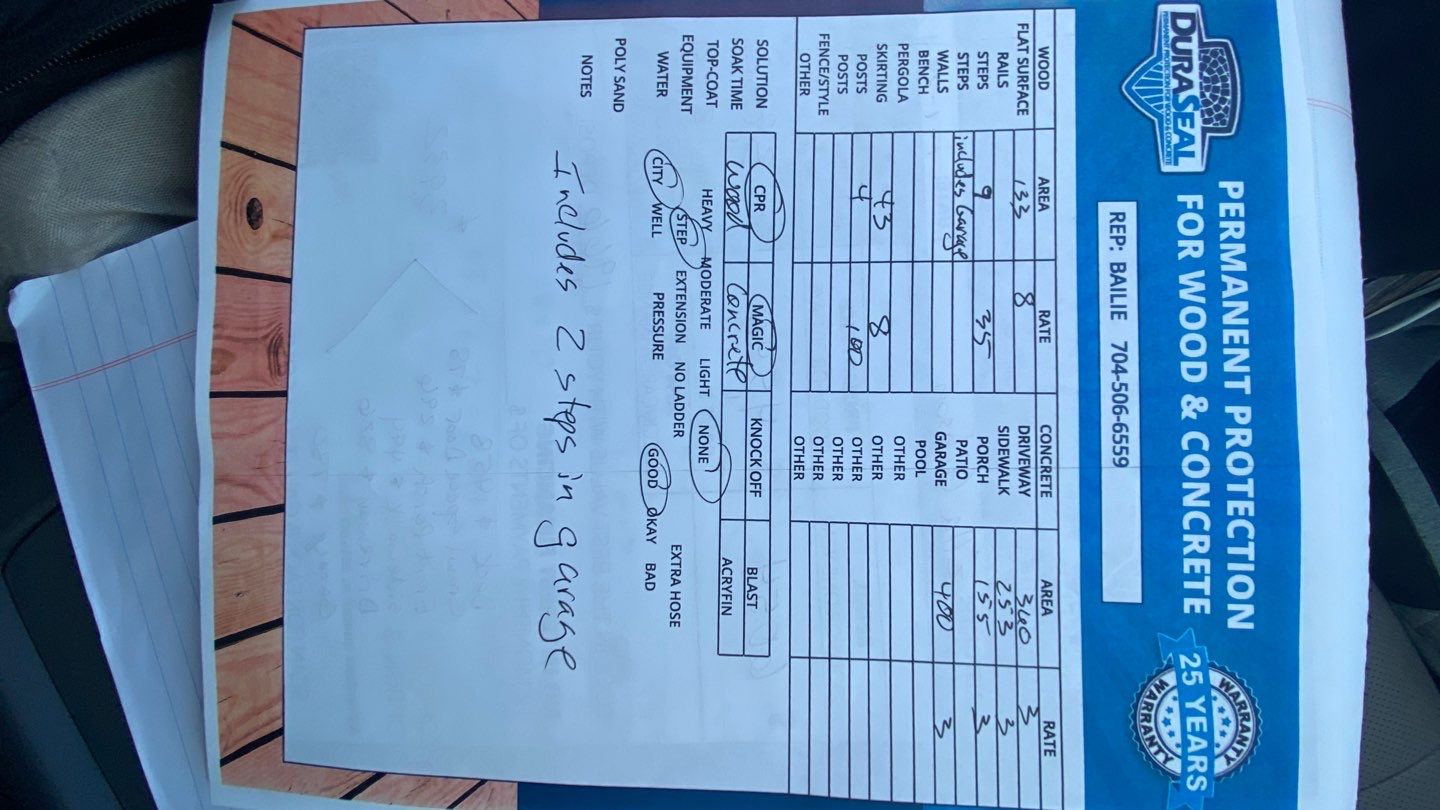 DURASEAL
PERMANENT PROTECTION FOR WOOD & CONCRETE
PERMANENT PROTECTION
FOR WOOD & CONCRETE
25 YEARS
WARRANTY
WARRANTY
REP: BAILIE 704-506-6559
WOOD AREA RATE CONCRETE AREA RATE
FLAT SURFACE 133 8 DRIVEWAY 360 3
RAILS SIDEWALK 253 3
STEPS 9 35 PORCH 155 3
STEPS includes Garage PATIO
WALLS GARAGE 400 3
BENCH POOL
PERGOLA OTHER
SKIRTING 43 8 OTHER
POSTS 4 100 OTHER
POSTS OTHER
FENCE/STYLE OTHER
OTHER OTHER
SOLUTION CPR MAGIC KNOCK OFF BLAST
SOAK TIME Wood Concrete ACRYFIN
TOP-COAT HEAVY MODERATE LIGHT NONE
EQUIPMENT STEP EXTENSION NO LADDER EXTRA HOSE
WATER CITY WELL PRESSURE GOOD OKAY BAD
POLY SAND
NOTES Includes 2 steps in garage